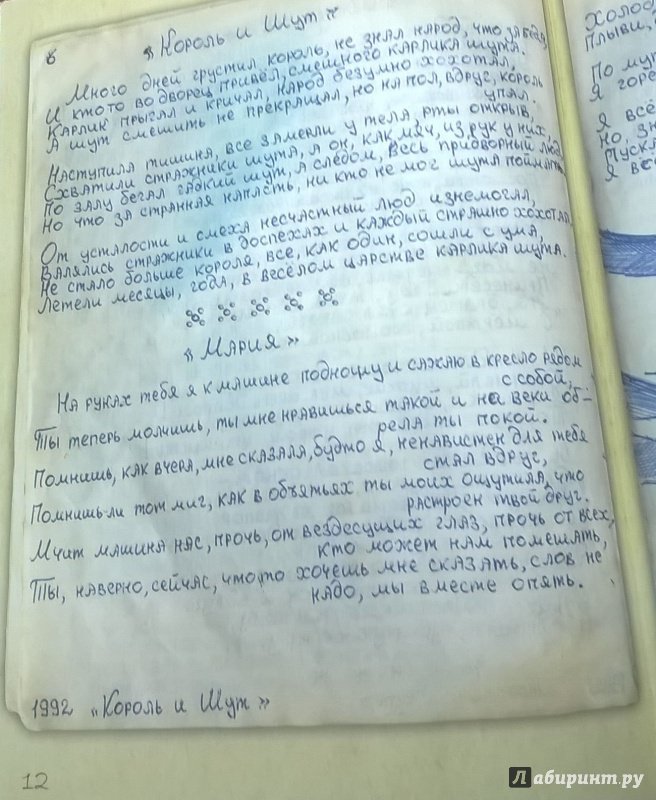 6
«Король и Шут»
Много дней грустил король, не знал народ, что за беда,
И кто то во дворец привёл, смешного карлика шута.
Карлик прыгал и кричал, народ безумно хохотал,
А шут смешить не прекращал, но на пол, вдруг, король
упал.
Наступила тишина, все замерли у тела, рты открыв,
Схватили стражники шута, а он, как мяч, из рук у них,
По залу бегал гадкий шут, а следом, весь придворный люд,
Но что за странная напасть, ни кто не мог шута поймать.
От усталости и смеха несчастный люд изнемогал,
Валялись стражники в доспехах и каждый страшно хохотал.
Не стало больше короля, все, как один, сошли с ума,
Летели месяцы, года, в весёлом царстве карлика шута.
«Мария»
На руках тебя я к машине подношу и сажаю в кресло рядом
с собой,
Ты теперь молчишь, ты мне нравишься такой и на веки об-
рела ты покой.
Помнишь, как вчера, мне сказала, будто я, ненавистен для тебя
стал вдруг,
Помнишь-ли тот миг, как в объятьях ты моих ощутила, что
растроен твой друг.
Мчит машина нас, прочь, от вездесущих глаз, прочь от всех,
кто может нам помешать,
Ты, наверно, сейчас, что то хочешь мне сказать, слов не
надо, мы вместе опять.
1992 «Король и Шут»
12
холод
плыви,
По
Я
Я всё
Но
Пуска
Я
Лабиринт.ру